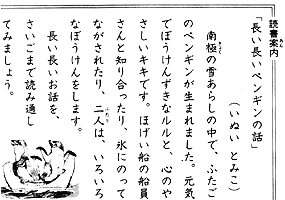 読書案内
あん
「長い長いペンギンの話」
（いぬい とみこ）
南極の雪あらしの中で、ふたご
のペンギンが生まれました。元気
でぼうけんずきなルルと、心のや
さしいキキです。ほげい船の船員
さんと知り合ったり、氷にのって
ながされたり、二人は、いろいろ
ふたり
なぼうけんをします。
長い長いお話を、
さいごまで読み通し
てみましょう。